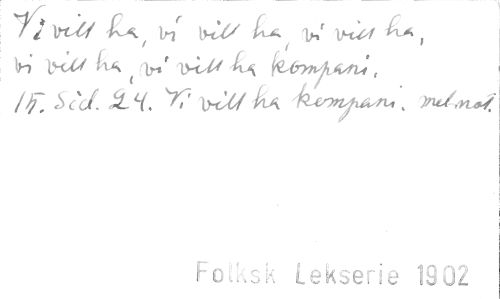 Vi vill ha, vi vill ha, vi vill ha,
vi vill ha, vi vill ha kompani.
15. Sid. 24. Vi vill ha kompani. mel.not.
Folksk Lekserie 1902